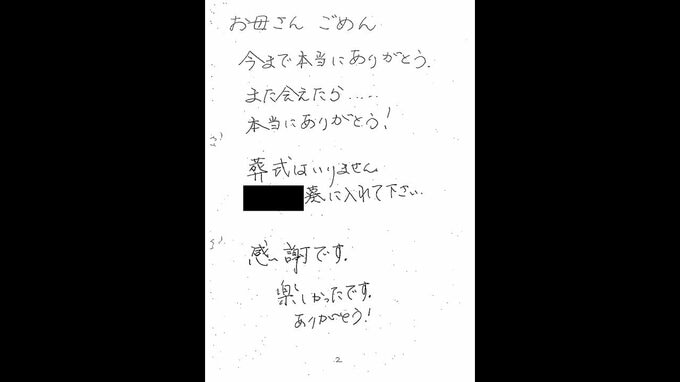 お母さん ごめん
今まで本当にありがとう.
また会えたら.....
本当にありがとう!
葬式はいりません
墓に入れて下さい.
感謝です.
楽しかったです.
ありがとう!
2